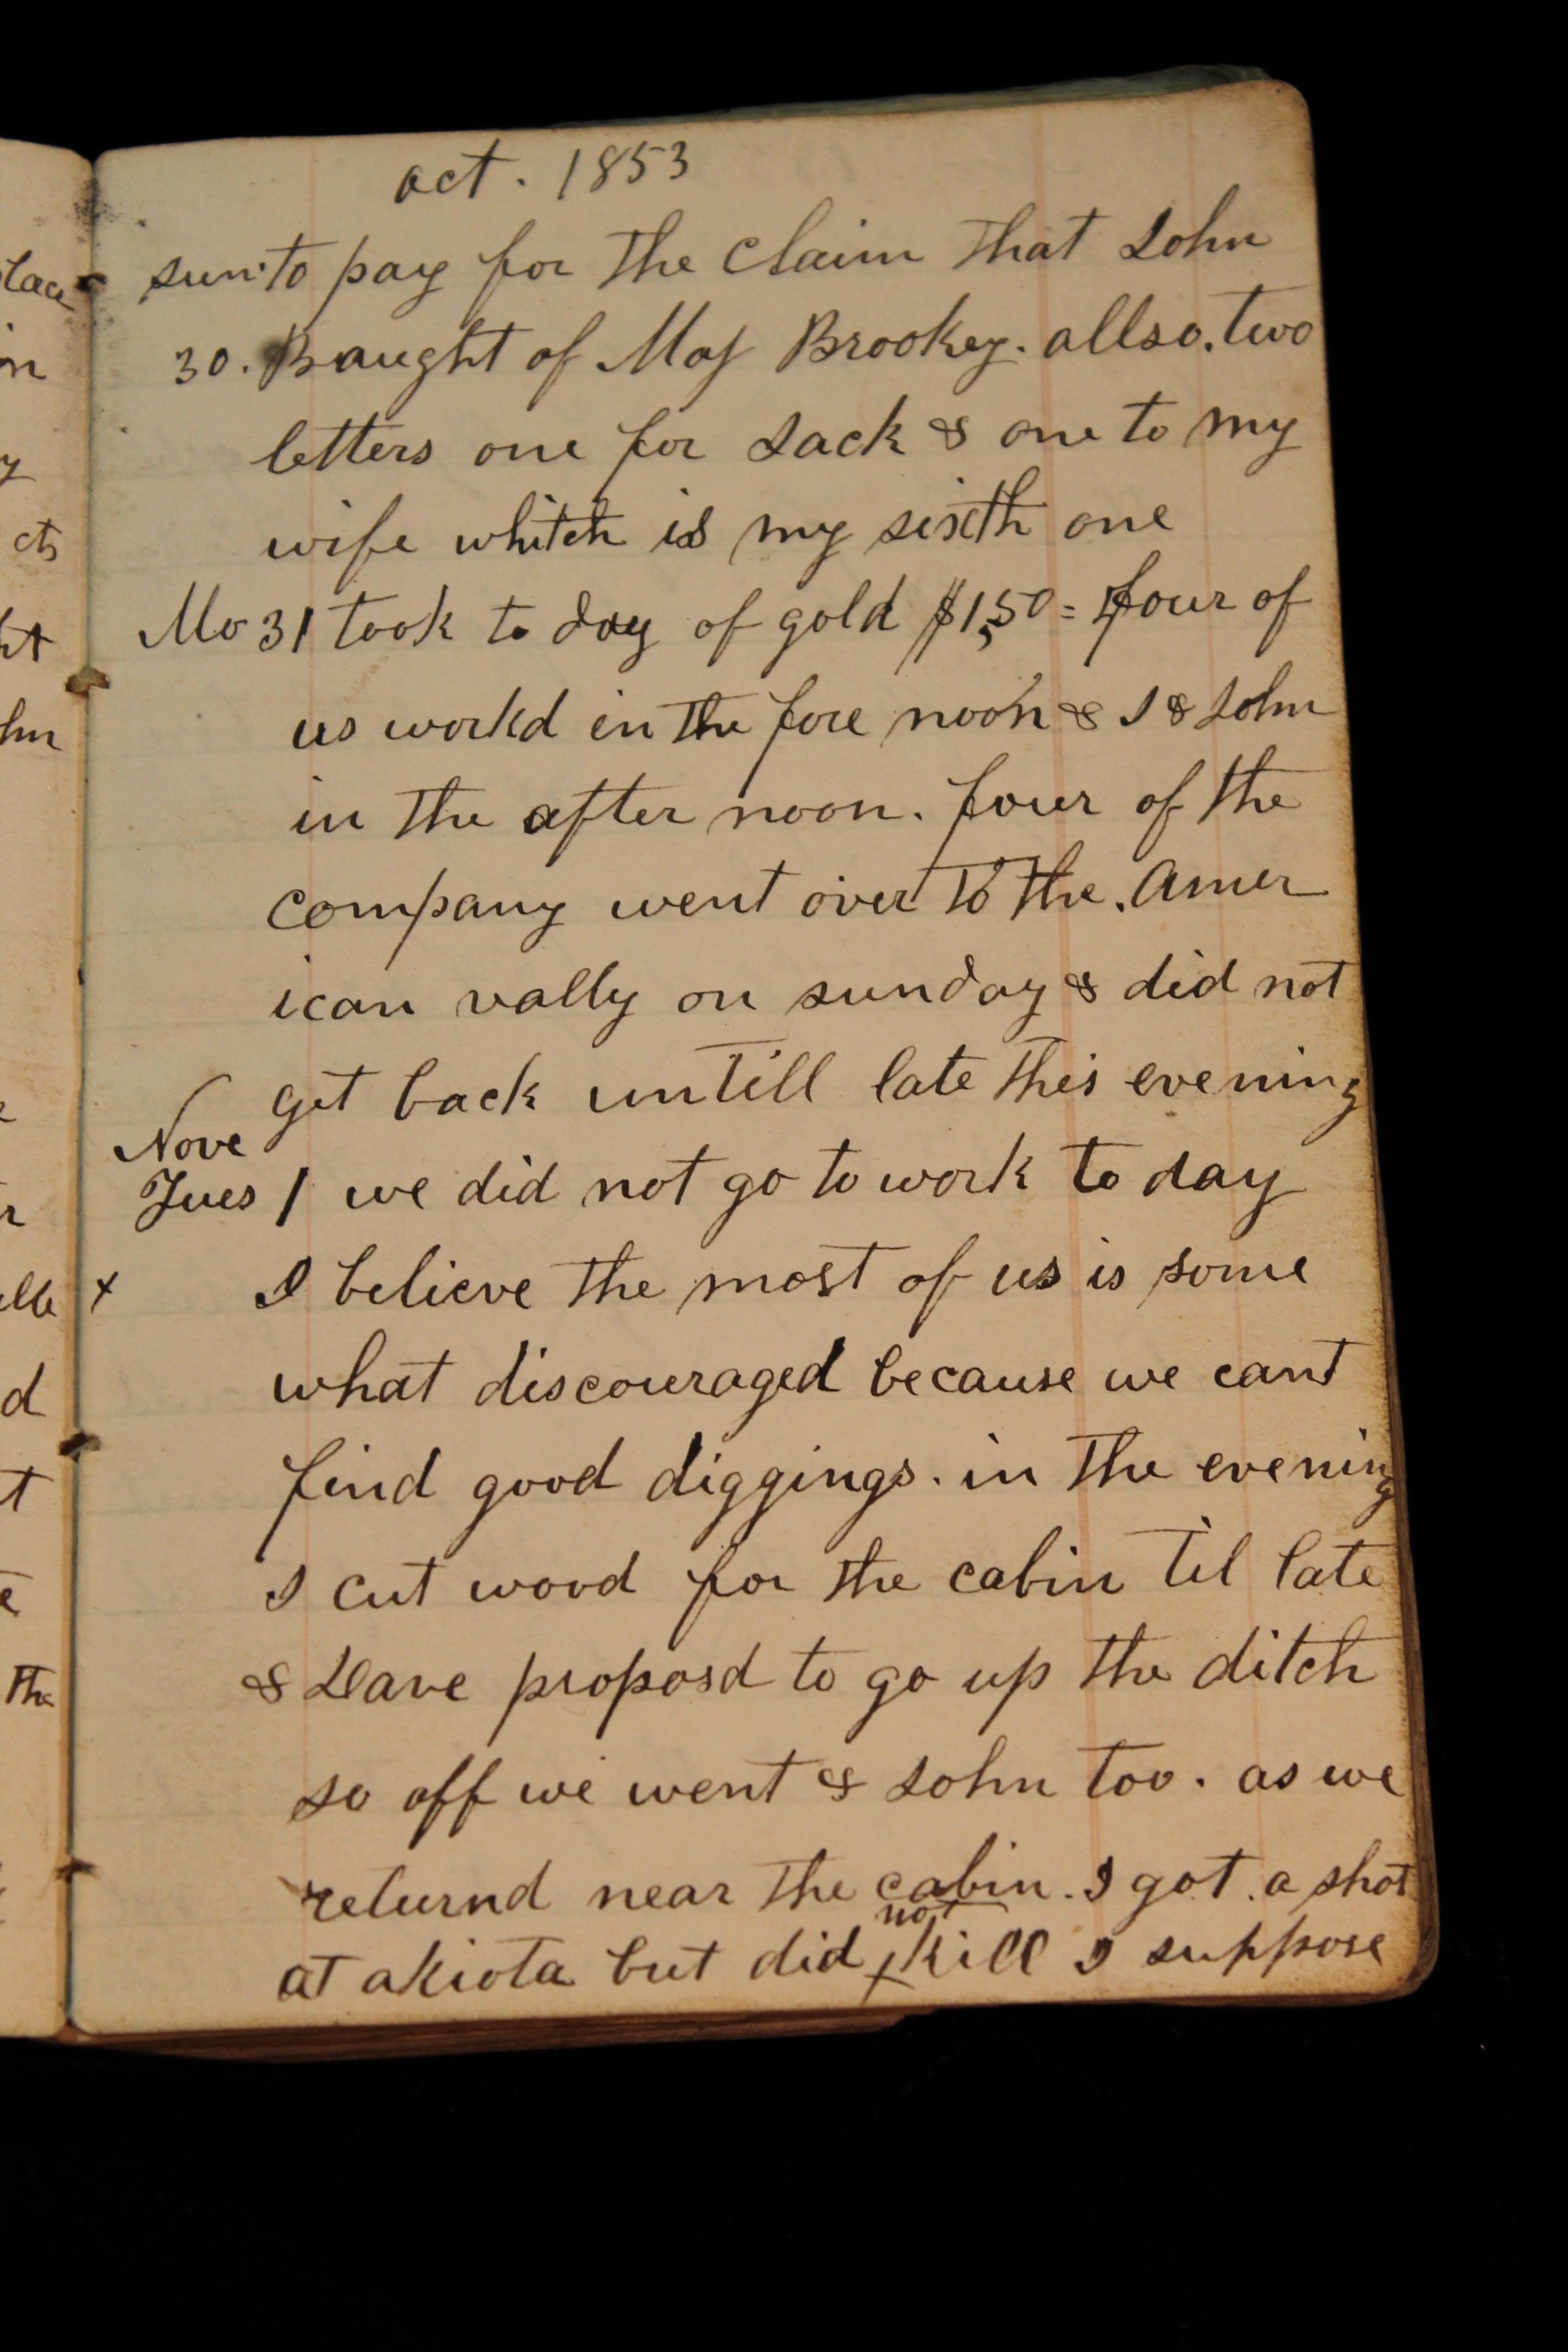 oct. 1853
sun. to pay for the claim that John
30. Baught of Maj Brookey. allso. two
letters one for Jack & one to my
wife whitch is my sixth one
Mo 31 took to day of gold $1,50 = four of
us workd in the fore noon & I & John
in the after noon. four of the
company went over to the. Amer
ican vally on sunday & did not
get back untill late this evening
Nove
Tues 1 we did not go to work to day
x I believe the most of us is some
what discouraged because we cant
find good diggings. in the evening
I cut wood for the cabin til late
& Dave proposd to go up the ditch
so off we went & John too. as we
returnd near the cabin. I got. a shot
not
at akiota but did kill I suppose